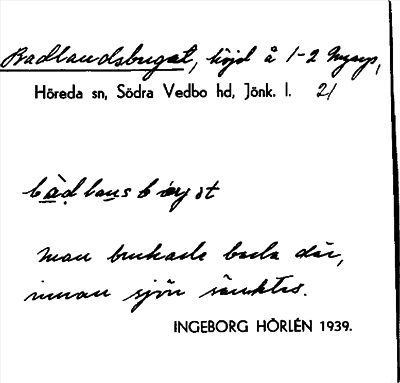 Badlandsbuget, höjd å 1-2 Myarp,
Höreda sn, Södra Vedbo hd, Jönk. l. 21
man brukade bada där,
innan sjön sänktes.
INGEBORG HÖRLÉN 1939.